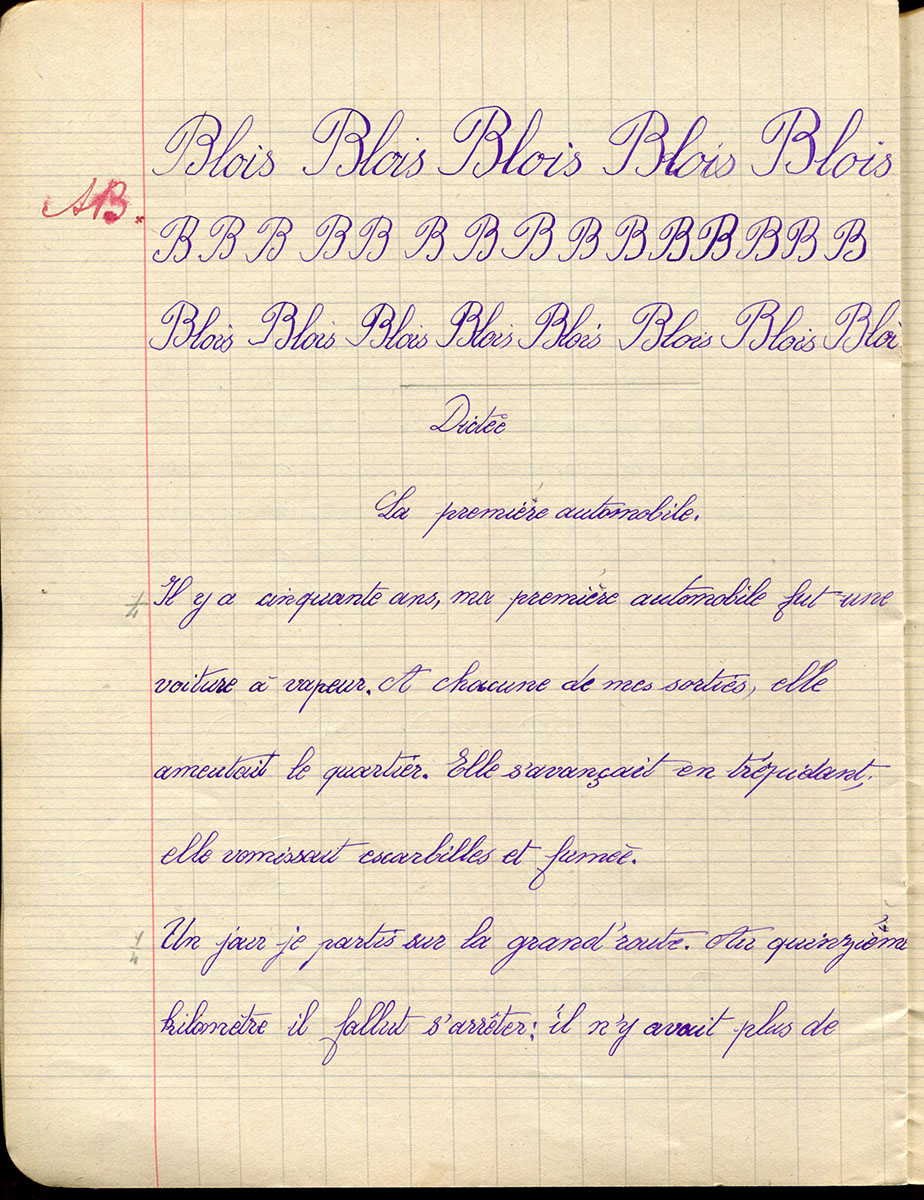 Blois Blois Blois Blois Blois
AB.
B B B B B B B B B B B B B B B
Blois Blois Blois Blois Blois Blois Blois Bloi
Dictée
La première automobile.
1/4
Il y a cinquante ans, ma première automobile fut une
voiture à vapeur. A chacune de mes sorties, elle
ameutait le quartier. Elle s'avançait en trépidant,
elle vomissait escarbilles et fumée.
1/4
Un jour je partis sur la grand'route. Au quinzième
kilomètre il fallut s'arrêter; il n'y avait plus de